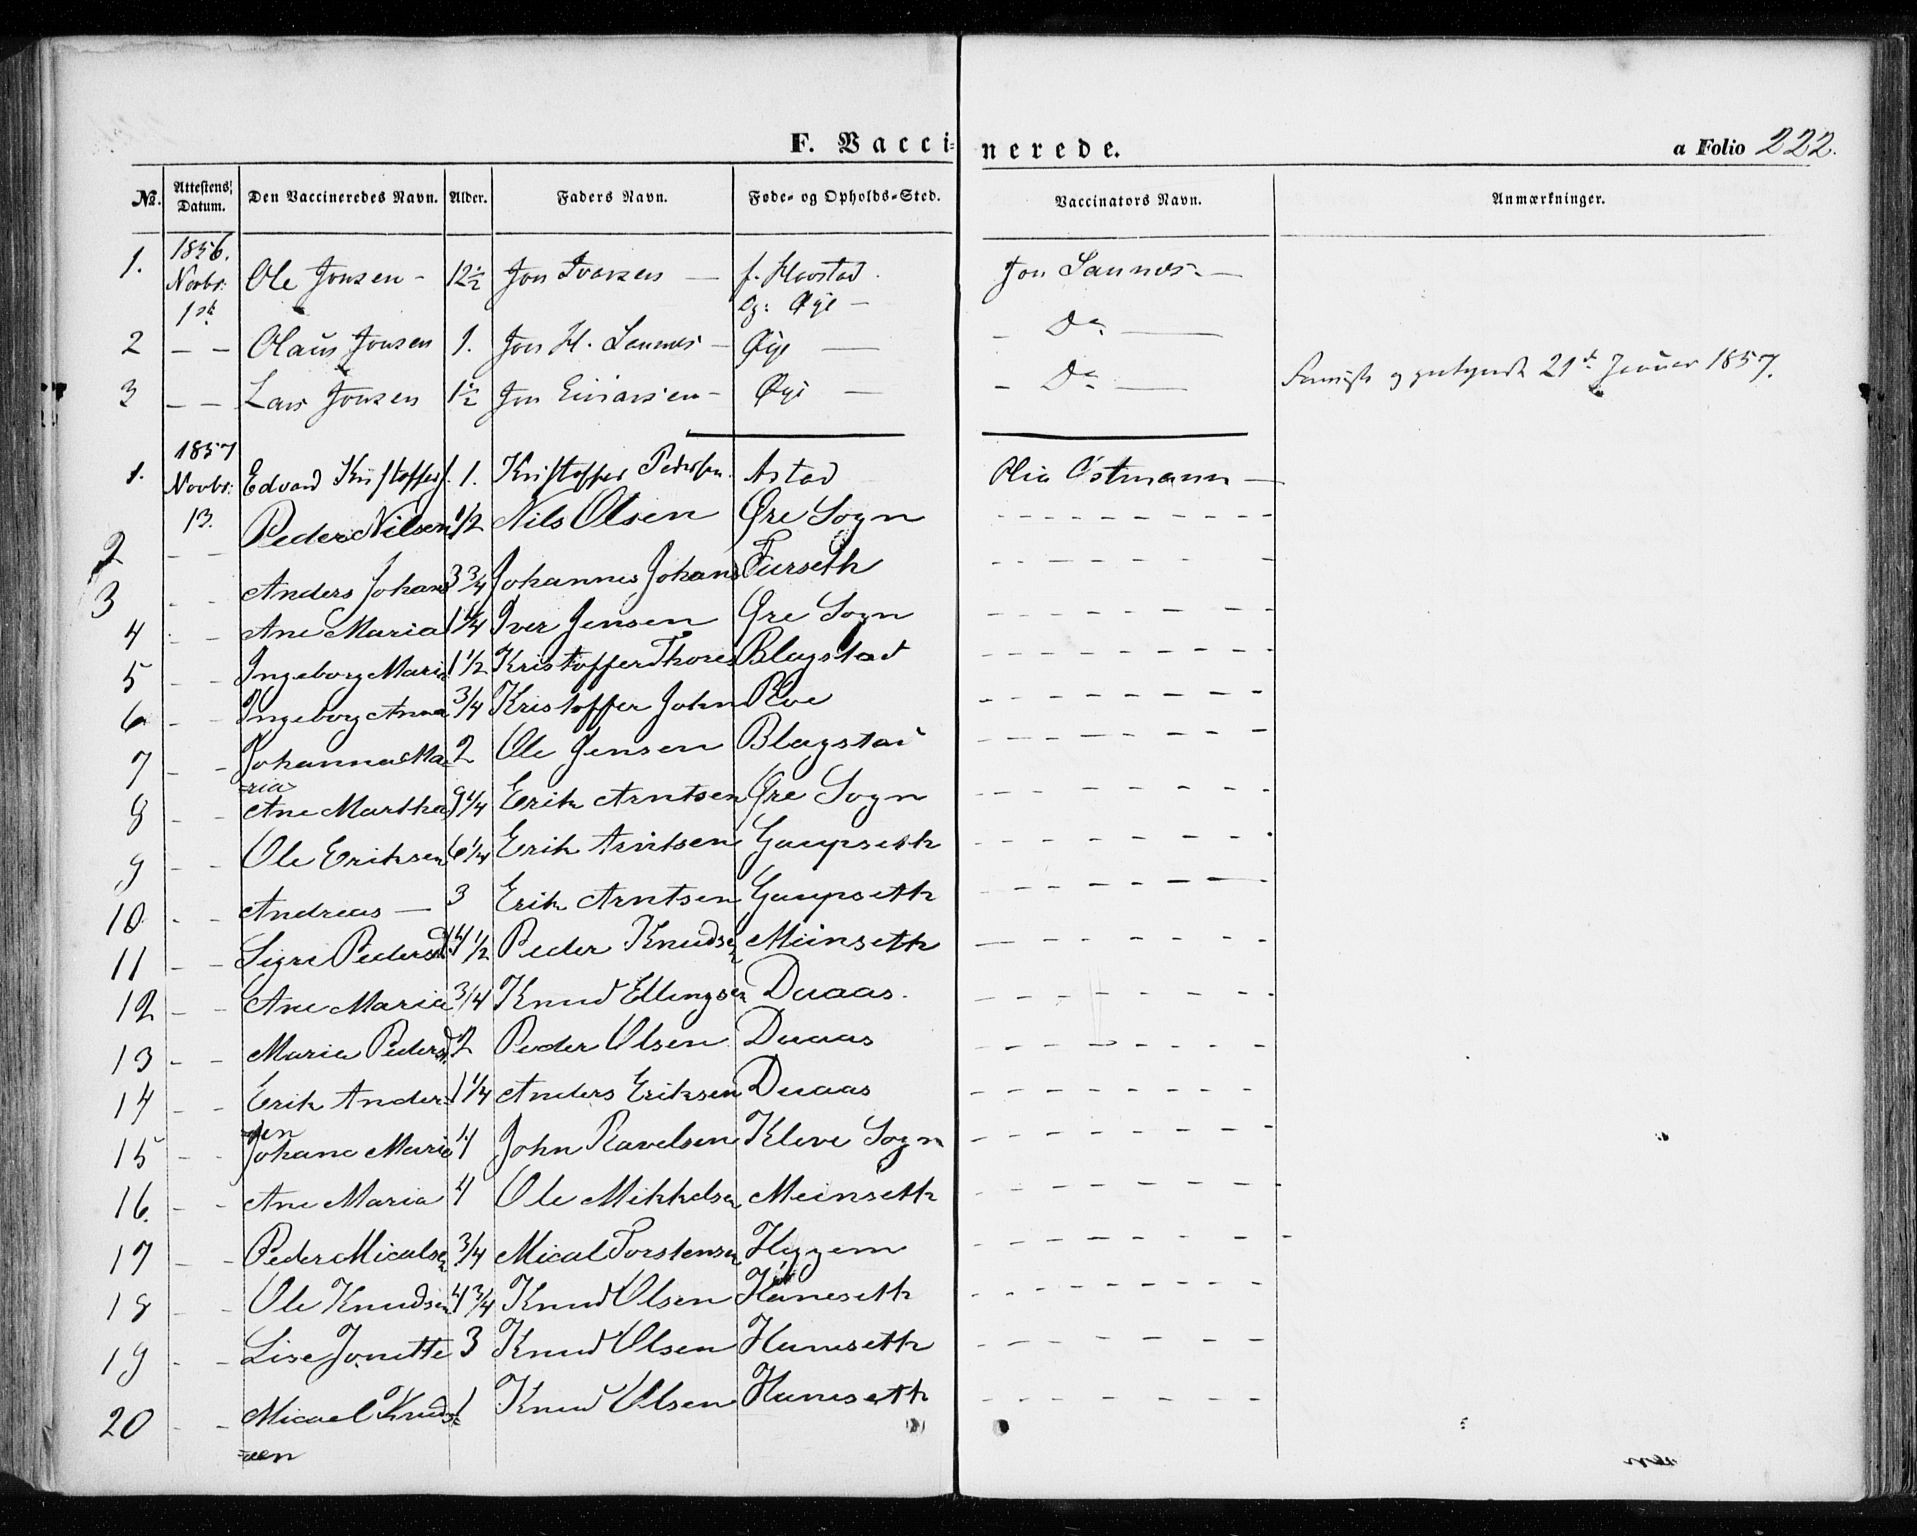 F. Vaccinerede.
a Folio 222.
No. Attestens Datum. Den Vaccineredes Navn. Alder. Faders Navn. Føde- og Opholds-Sted. Vaccinators Navn. Anmærkninger.
1. 1856. Novbr. 1st Ole Jonsen - 12½ Jon Ivarsen — f. Havstad. og: Øye — Jon Sannes. —
2 — — Olaus Jonsen 1. Jon H. Sannes — Øye — - Do —
3 — — Lars Jonsen 1½ Jon Einarsen - Øye — - Do — 21de Januar 1857.
1. 1857 Novbr. 13. Edvard Kristoffers. 1. Kristoffer Pedersen. Astad Olia Østmann —
2 - - Peder Nilsen ½ Nils Olsen Øre Sogn - - - - - - - -
3 - - Anders Johans 3¾ Johannes Johans Furseth - - - - - - - -
4 - - Ane Maria 1¼ Iver Jensen Øre Sogn - - - - - - - -
5 - - Ingeborg Maria 1½ Kristoffer Thores Blagstad - - - - - - - -
6 - - Ingeborg Anna ¾ Kristoffer John Roe - - - - - - - -
7 - - Johanna Ma=ria 2 Ole Jensen Blagstad - - - - - - - -
8 - - Ane Martha 9¼ Erik Arntsen Øre Sogn - - - - - - - -
9 - - Ole Eriksen 6¼ Erik Arntsen Gaupseth - - - - - - - -
10 - - Andreas — 3 Erik Arntsen Gaupseth - - - - - - - -
11 - - Sigri Pedersd 4½ Peder Knudsen Meinseth - - - - - - - -
12 - - Ane Maria ¾ Knud Ellingsen Duaas. - - - - - - - -
13 - - Maria Pedersd. 2 Peder Olsen Duaas - - - - - - - -
14 - - Erik Ander=sen 1¼ Anders Eriksen Duaas - - - - - - - -
15 - - Johane Marie 4 John Ravelsen Kleve Sogn - - - - - - - -
16. - - Ane Maria 4 Ole Mikkelsen Meinseth - - - - - - - -
17 - - Peder Micalsen ¾ Mical Torstensen Heggem - - - - - - - -
18 - - Ole Knudsen 4¾ Knud Olsen Haneseth - - - - - - - -
19 - - Lise Jonette 3 Knud Olsen Haneseth - - - - - - - -
20 - - Micael Knud=sen 1 Knud Olsen Haneseth - - - - - - - -